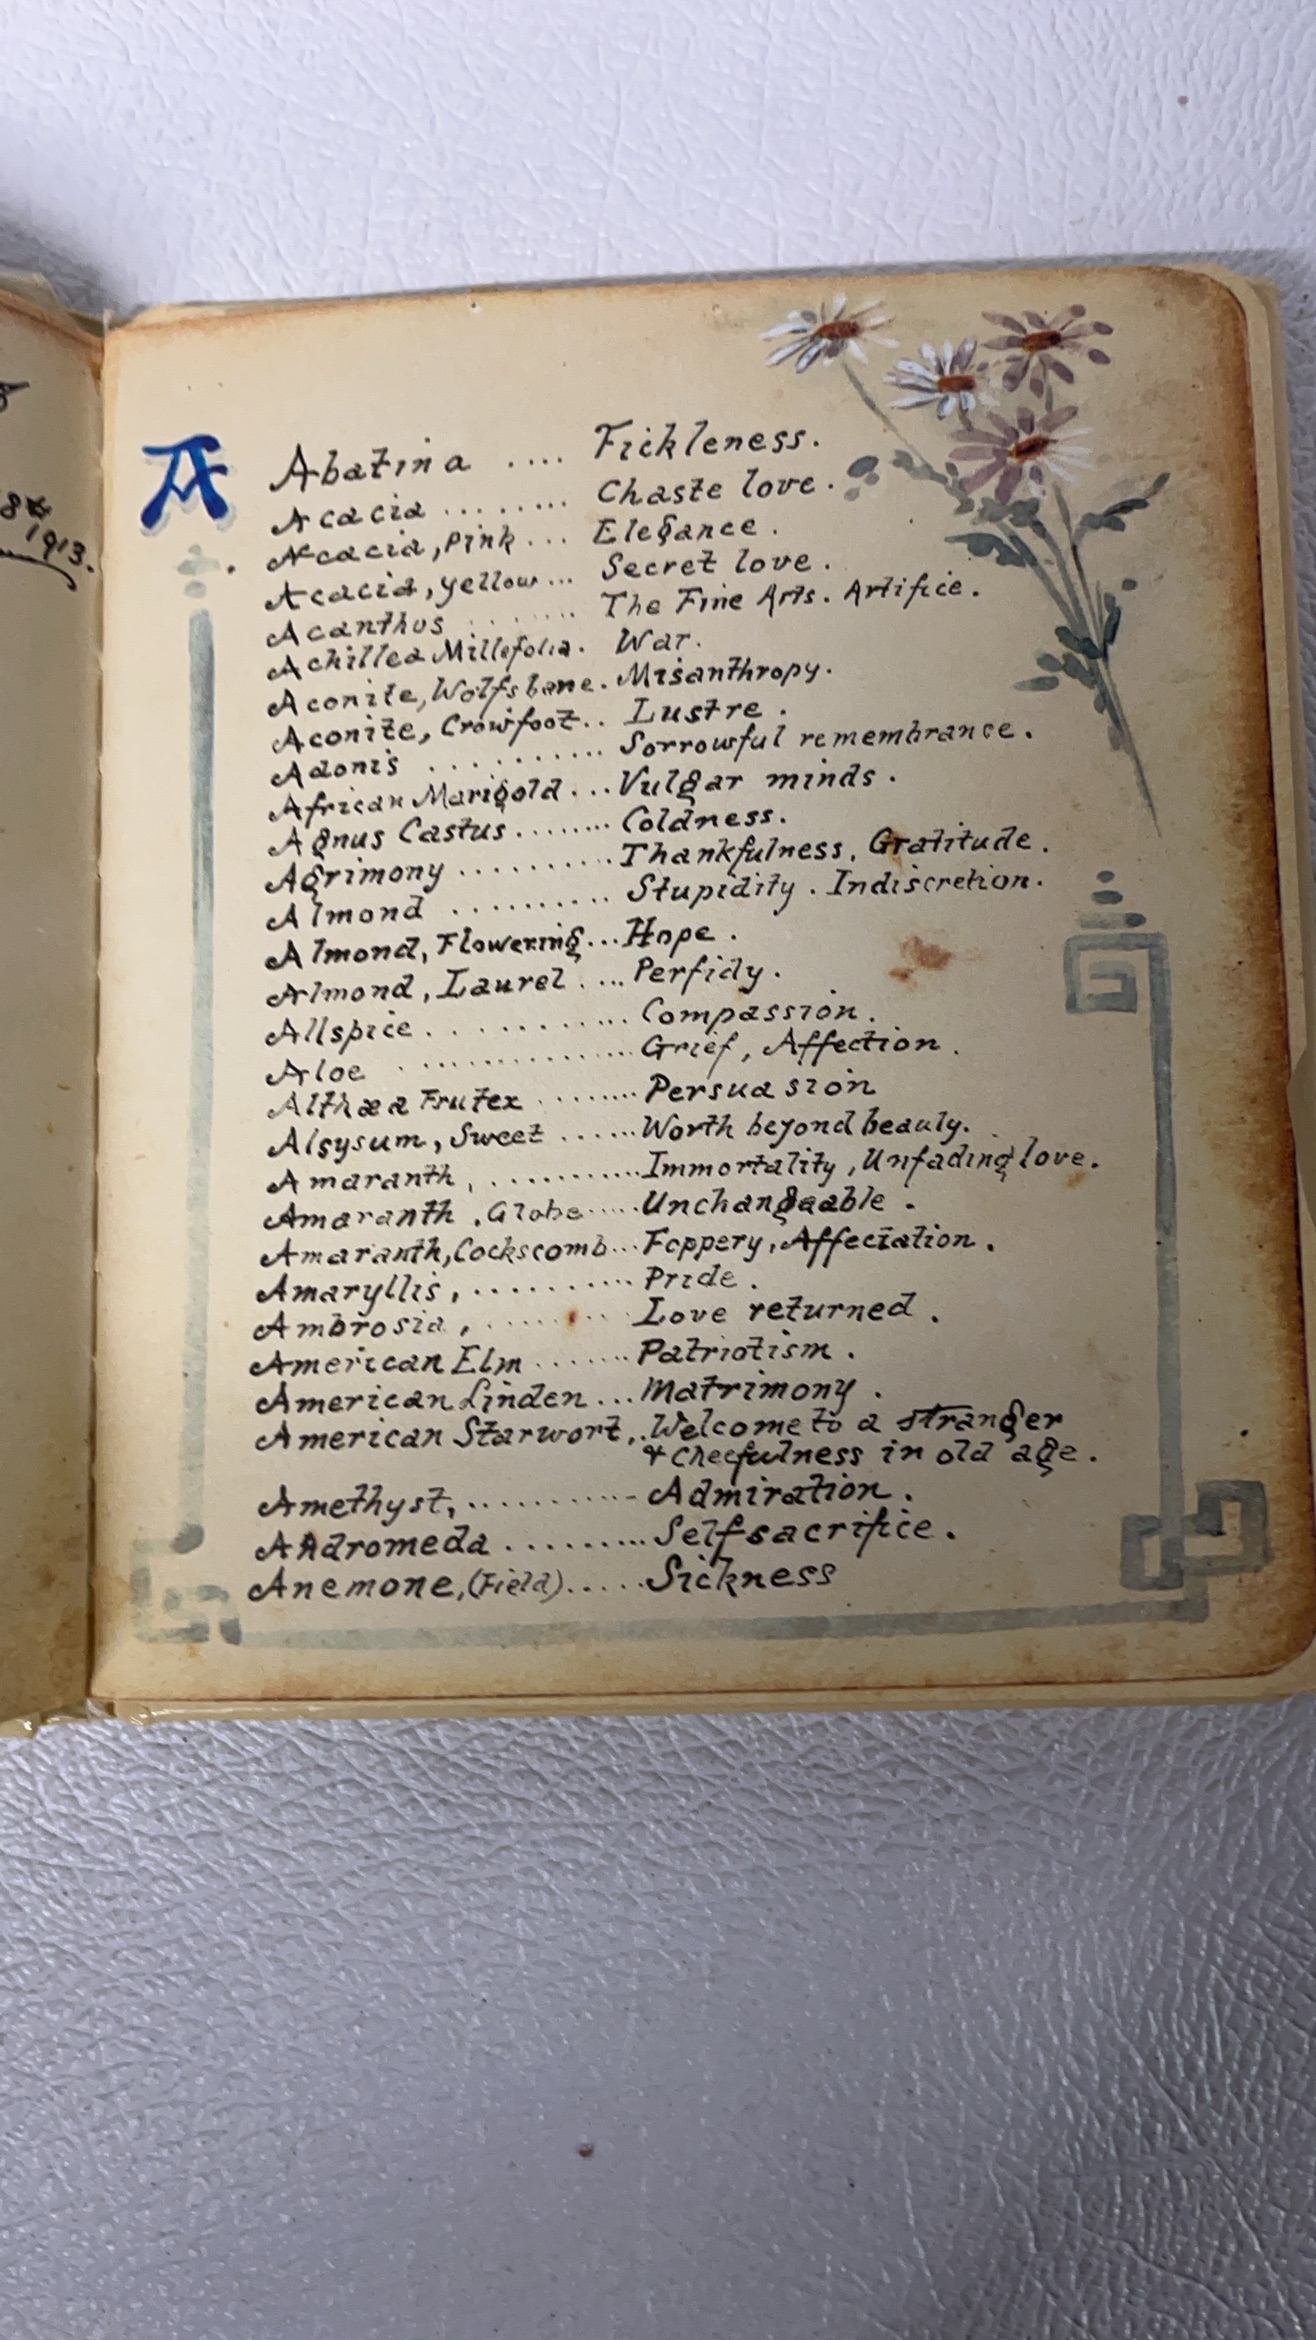 8th
1913.
A
Abatina .... Fickleness.
Acacia ......... Chaste love.
Acacia, pink ... Elegance.
Acacia, yellow ... Secret love.
Acanthus ....... The Fine Arts. Artifice.
Achillea Millefolia. War.
Aconite, Wolfsbane. Misanthropy.
Aconite, Crowfoot.. Lustre.
Adonis .......... Sorrowful remembrance.
African Marigold ... Vulgar minds.
Agnus Castus ........ Coldness.
Agrimony .......... Thankfulness, Gratitude.
Almond .......... Stupidity. Indiscretion.
Almond, Flowering ... Hope.
Almond, Laurel .... Perfidy.
Allspice ............ Compassion.
Aloe .............. Grief, Affection.
Althæa Frutex ........ Persuasion
Alsysum, Sweet ...... Worth beyond beauty.
Amaranth, ........... Immortality, Unfading love.
Amaranth, Globe ..... Unchangaable.
Amaranth, Cockscomb... Foppery, Affectation.
Amaryllis, .......... Pride.
Ambrosia, ......... Love returned.
American Elm ....... Patriotism.
American Linden ... Matrimony.
American Starwort, . Welcome to a stranger
& cheefulness in old age.
Amethyst, ........... Admiration.
Andromeda ......... Self sacrifice.
Anemone, (Field) ..... Sickness